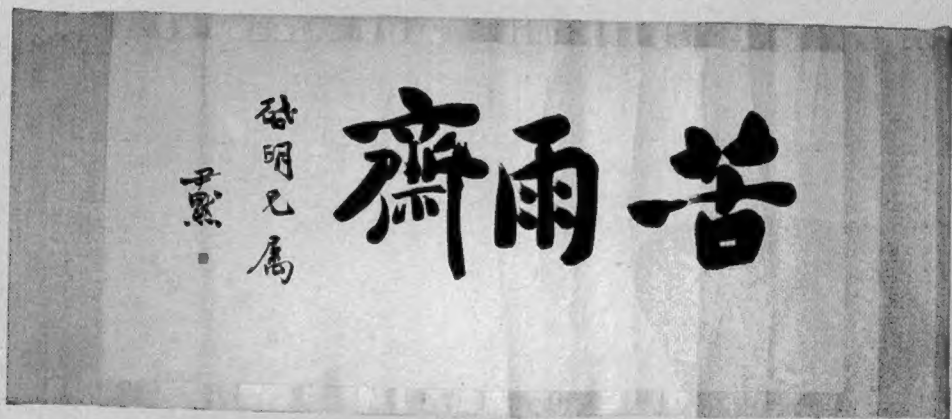 苦雨齋
啟明兄属
尹默